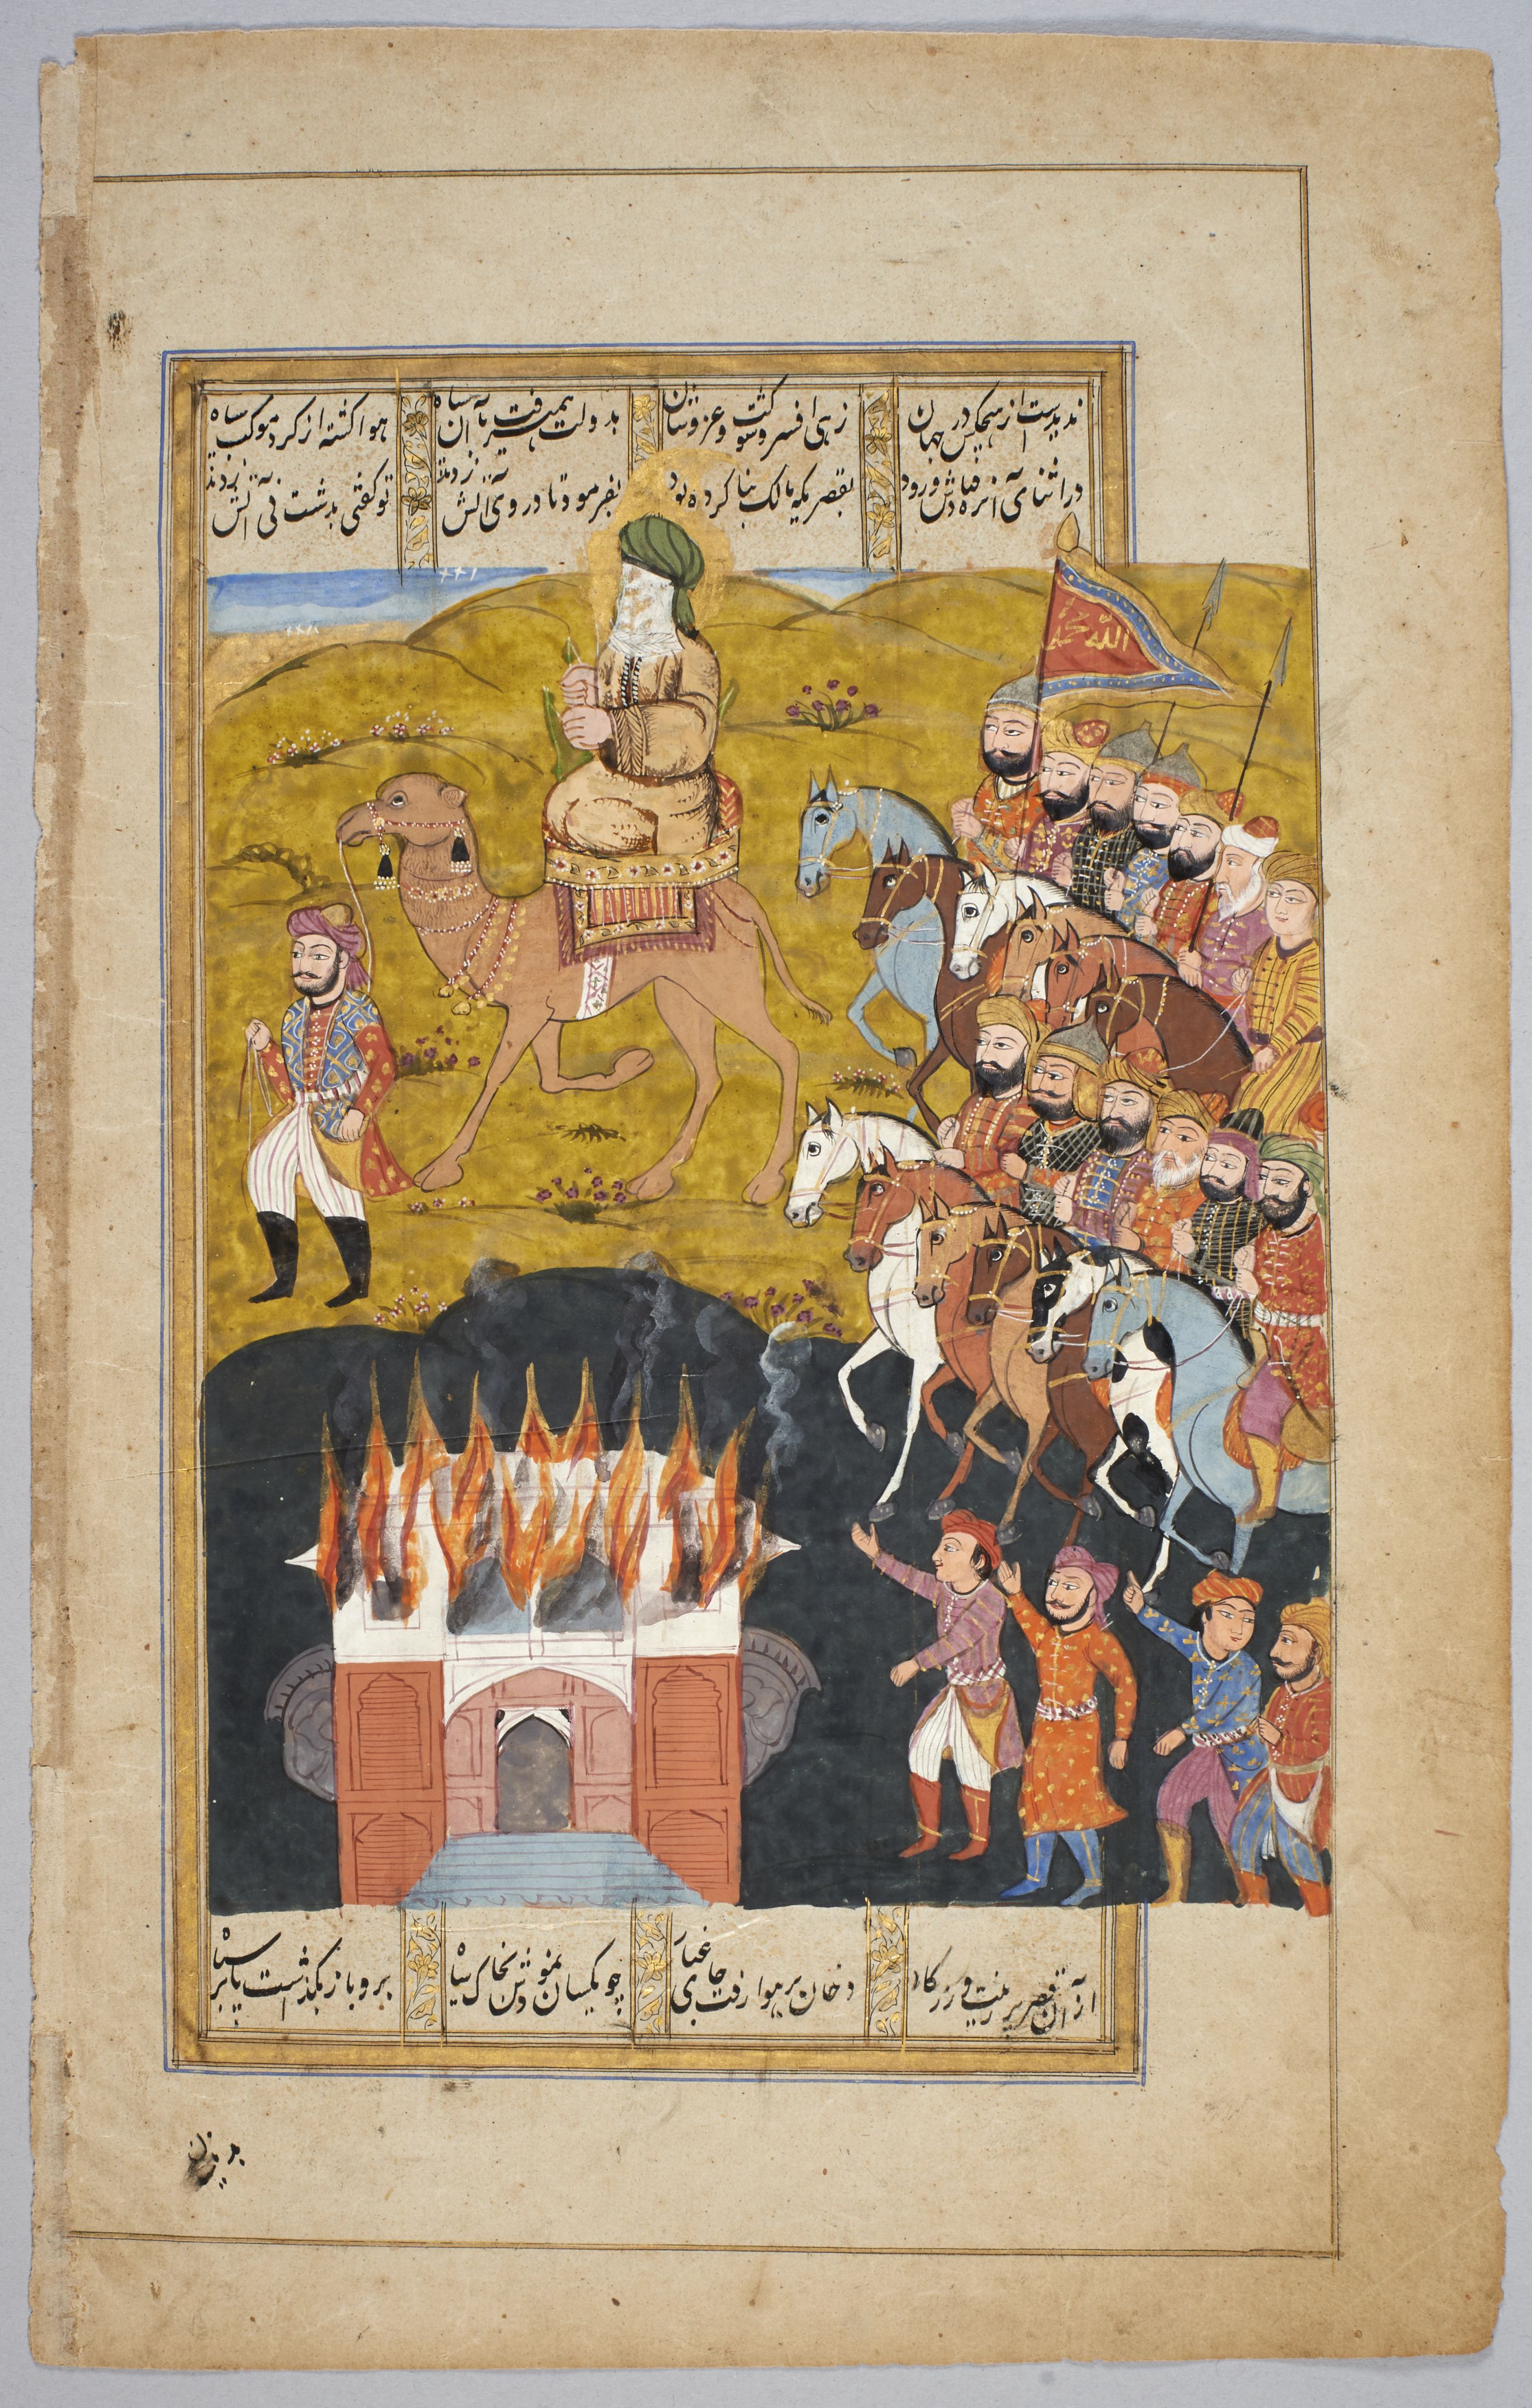 ندیدست از هیچکس در جهان زهی افسر و شوکت و عز و شان بدولت همیرفت با آن سپاه هوا گشته از گرد موکب سیاه
در اثنای آن ره فتادش ورود بقصریکه مالک بنا کرده بود بفرمود تا در وی آتش زدند تو گفتی بدشت نی آتش زدند
الله محمد
از آن قصر پر زینت و زرنگار دخان بر هوا رفت جای غبار چو یکسان نمودش بخاک سیاه برو باز بگذشت سپاه
بدینسان